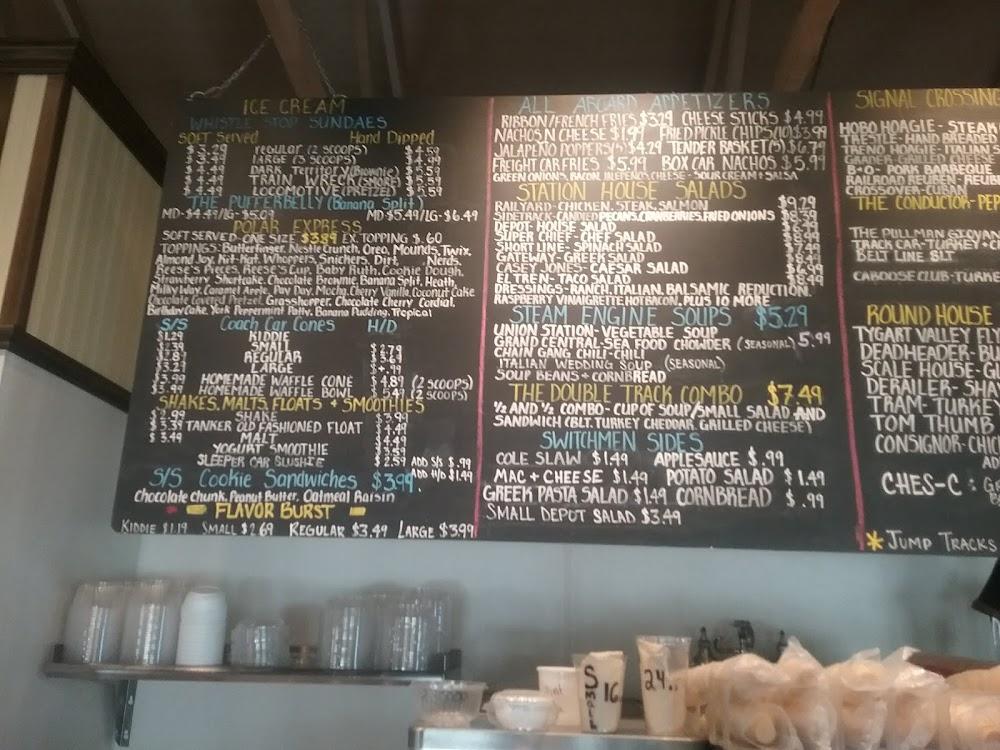 ICE CREAM
WHISTLE STOP SUNDAES
SOFT Served Hand Dipped
$3.29 regular (2 SCOOPS) $4.59
$3.49 LARGE (3 SCOOPS) $4.99
$4.49 DARK Territory (Brownie) $5.59
$4.49 TRAIN WRECK (SMORE) $5.59
$4.49 LOCOMOTIVE (PRETZEL) $5.59
THE PUFFERBELLY (Banana Split)
MD-$4.49/LG-$5.09 MD $5.49/LG-$6.49
POLAR EXPRESS
SOFT SERVED-ONE SIZE $3.89 EX. TOPPING $.60
TOPPINGS: Butterfinger, Nestle Crunch, Oreo, Mounds, Twix,
Almond Joy, Kit-Kat, Whoppers, Snickers, Dirt, Nerds,
Reese's Pieces, Reese's Cup, Baby Ruth, Cookie Dough,
Strawberry Shortcake, Chocolate Brownie, Banana Split, Heath,
Milky Way, Caramel Apple, Pay Day, Mocha, Cherry Vanilla, Coconut Cake
Chocolate Covered Pretzel, Grasshopper, Chocolate Cherry Cordial,
Birthday Cake, York Peppermint Patty, Banana Pudding, Tropical
S/S Coach Car Cones H/D
$1.29 KIDDIE
SMALL $2.79
$2.87 REGULAR $3.69
$3.29 LARGE
$3.99 HOMEMADE WAFFLE CONE $4.89 (2 SCOOPS)
$4.99 HOMEMADE WAFFLE BOWL $5.49 (2 SCOOPS)
SHAKES, MALTS, FLOATS + SMOOTHIES
$2.99 SHAKE $3.99
$3.39 TANKER OLD FASHIONED FLOAT $4.49
$3.49 MALT $4.49
YOGURT SMOOTHIE
SLEEPER CAR SLUSHIE $2.59 ADD S/S $.99
ADD H/D $1.49
S/S Cookie Sandwiches $3.99
Chocolate Chunk, Peanut Butter, Oatmeal Raisin
FLAVOR BURST
KIDDIE $1.19 SMALL $2.69 REGULAR $3.49 LARGE $3.99
ALL ABOARD APPETIZERS
RIBBON/FRENCH FRIES $3.29 CHEESE STICKS $4.99
NACHOS N CHEESE $1.99 FRIED PICKLE CHIPS (10) $3.99
JALAPENO POPPERS (5) $4.29 TENDER BASKET (3) $6.79
FREIGHT CAR FRIES $5.99 BOX CAR NACHOS $5.99
GREEN ONIONS, BACON, JALEPENOS, CHEESE - SOUR CREAM + SALSA
STATION HOUSE SALADS
RAILYARD - CHICKEN, STEAK, SALMON $9.29
SIDETRACK - CANDIED PECANS, CRANBERRIES, FRIED ONIONS $8.39
DEPOT - HOUSE SALAD
SUPER CHIEF - CHEF SALAD
SHORT LINE - SPINACH SALAD $7.49
GATEWAY - GREEK SALAD
CASEY JONES - CAESAR SALAD $6.99
EL TREN - TACO SALAD
DRESSINGS - RANCH, ITALIAN, BALSAMIC REDUCTION,
RASPBERRY VINAIGRETTE, HOT BACON, PLUS 10 MORE
STEAM ENGINE SOUPS $5.29
UNION STATION - VEGETABLE SOUP
GRAND CENTRAL - SEA FOOD CHOWDER (SEASONAL) 5.99
CHAIN GANG CHILI - CHILI
ITALIAN WEDDING SOUP (SEASONAL)
SOUP BEANS + CORNBREAD
THE DOUBLE TRACK COMBO $7.49
½ AND ½ COMBO - CUP OF SOUP/SMALL SALAD AND
SANDWICH (BLT, TURKEY CHEDDAR, GRILLED CHEESE)
SWITCHMEN SIDES
COLE SLAW $1.49 APPLESAUCE $.99
MAC + CHEESE $1.49 POTATO SALAD $1.49
GREEK PASTA SALAD $1.49 CORNBREAD $.99
SMALL DEPOT SALAD $3.49
SIGNAL CROSSING
HOBO HOAGIE - STEAK
TRESTLE - HAND BREADED
TRENO HOAGIE - ITALIAN S
GRADER - GRILLED CHEESE
B+O - PORK BARBEQUE
RAILROAD REUBEN - REUBE
CROSSOVER - CUBAN
THE CONDUCTOR - PEP
THE PULLMAN GIOVAN
TRACK CAR - TURKEY + C
BELT LINE BLT
CABOOSE CLUB - TURKE
ROUND HOUSE
TYGART VALLEY FLY
DEADHEADER - BU
SCALE HOUSE - GU
DERAILER - SHA
TRAM - TURKEY
TOM THUMB
CONSIGNOR - CHIC
AD
CHES-C: G
* JUMP TRACKS
16
24